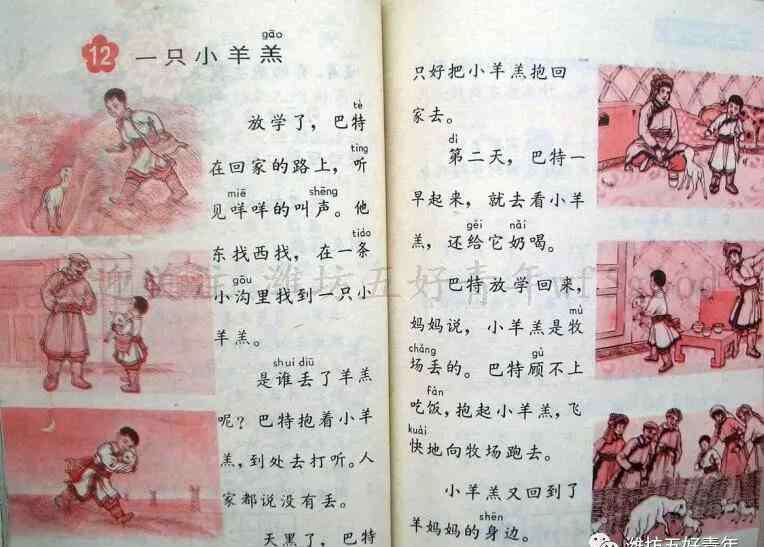 gāo
12 一只小羊羔
tè
放学了，巴特
tīng
在回家的路上，听
miē shēng
见咩咩的叫声。他
tiáo
东找西找，在一条
gōu
小沟里找到一只小
羊羔。
shuí diū
是谁丢了羊羔
呢？巴特抱着小羊
羔，到处去打听。人
家都说没有丢。
天黑了，巴特
只好把小羊羔抱回
家去。
dì
第二天，巴特一
早起来，就去看小羊
gěi nǎi
羔，还给它奶喝。
巴特放学回来，
mù
妈妈说，小羊羔是牧
chǎng gù
场丢的。巴特顾不上
fàn
吃饭，抱起小羊羔，飞
kuài
快地向牧场跑去。
小羊羔又回到了
shēn
羊妈妈的身边。
潍坊五好青年
潍坊五好青年